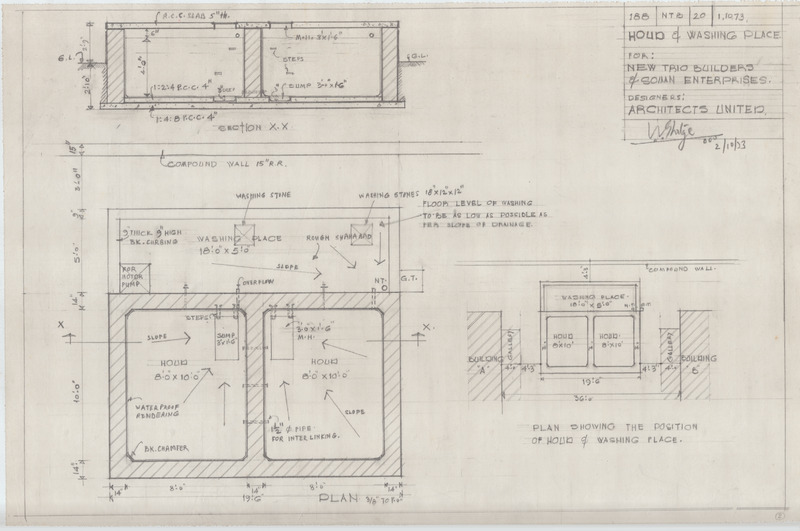 188 N.T.B 20 1,10,73.
HOUD & WASHING PLACE
FOR:
NEW TRIO BUILDERS
& SONAN ENTERPRISES.
DESIGNERS:
ARCHITECTS UNITED.
2/10/73
R.C.C. SLAB 5" th.
M.H. 3'x1'-6"
G.L.
G.L.
STEPS
SUMP 3'-0"x1'-6"
1:2:4 P.C.C. 4"
1:4:8 P.C.C. 4"
SECTION X.X
15"
COMPOUND WALL 15" R.R.
3'-0"
WASHING STONE
WASHING STONES 18"x12"x12"
FLOOR LEVEL OF WASHING
TO BE AS LOW AS POSSIBLE AS
PER SLOPE OF DRAINAGE.
9" THICK 9" HIGH
BK. CURBING
WASHING PLACE
18'-0"x5'-0"
ROUGH
5'-0"
SLOPE
FOR
MOTOR
PUMP
OVERFLOW
N.T.
G.T.
14"
STEPS
X
X.
SLOPE
SUMP
3'x1'-6"
3'-0"x1'-6"
M.H.
HOUD
8'-0"x10'-0"
HOUD
8'-0"x10'-0"
10'-0"
WATERPROOF
RENDERING
SLOPE
1½" ø PIPE
FOR INTERLINKING.
BK. CHAMFER
14"
14" 8'-0" 14" 8'-0" 14"
19'-6"
PLAN
COMPOUND WALL.
4'-3"
WASHING PLACE.
18'-0"x5'-0"
HOUD
8'x10'
HOUD
8'x10'
GALLERY
GALLERY
BUILDING
'A'
BUILDING
'B'
4'-0" 4'-3"
4'-3" 4'-0"
19'-6"
36'-0"
PLAN SHOWING THE POSITION
OF HOUD & WASHING PLACE.